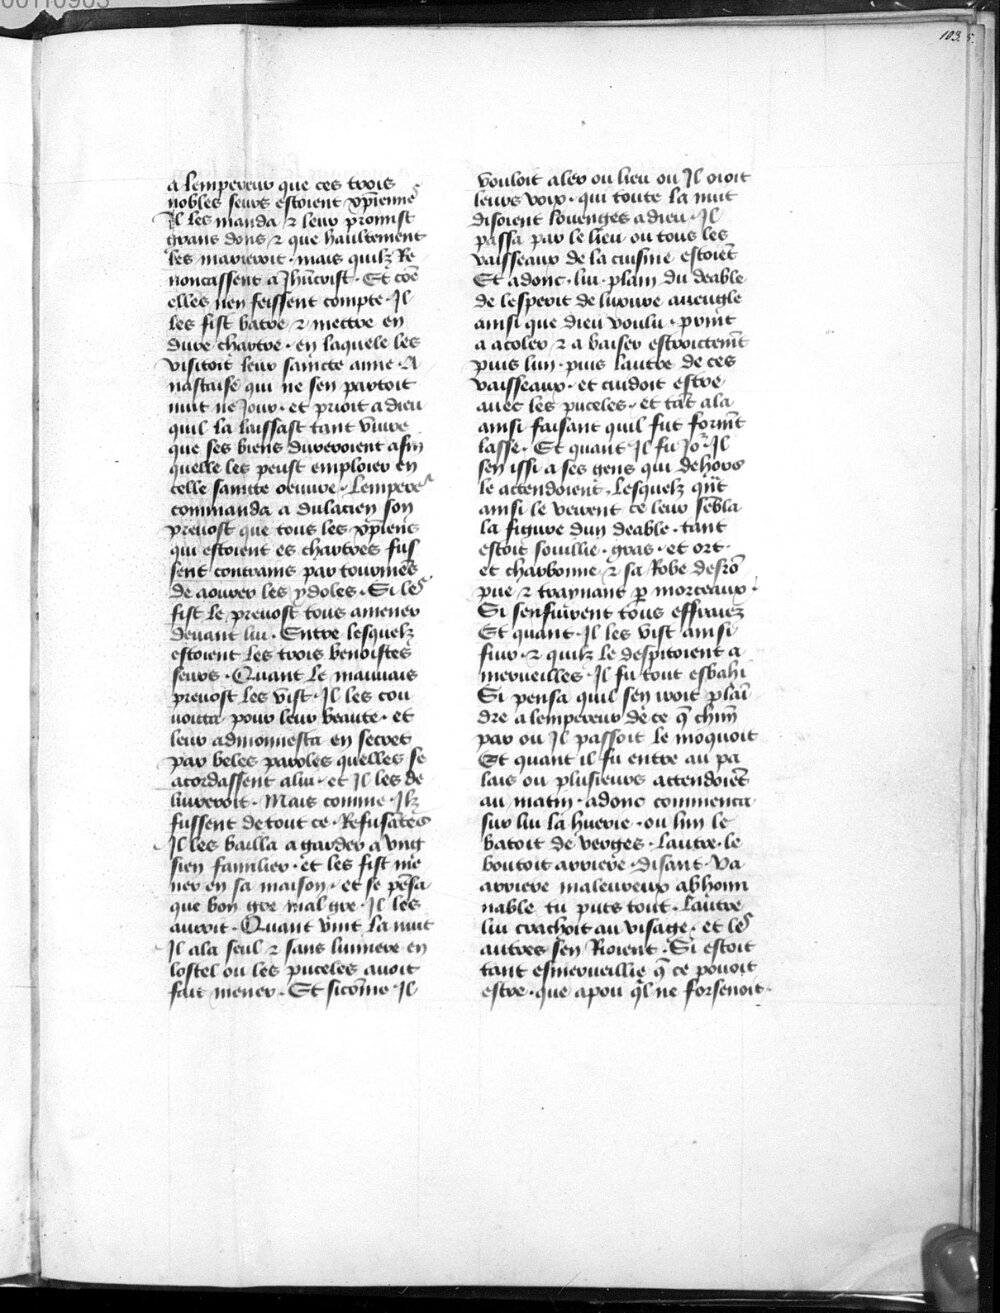 00110903
103. 5.
a lempereur que ces trois
nobles seurs estoient xp̄iennes
Il les manda ⁊ leur promist
grans dons ⁊ que haultement
les marieroit · mais quilz Re
noncassent a Jhūcrist · Et cōe
elles nen feissent compte · Il
les fist batre ⁊ mectre en
dure chartre · en laquele les
visitoit leur saincte anne · A
nastaise qui ne sen partoit
nuit ne Jour · et prioit a dieu
quil la laissast tant viure
que ses biens dureroient afin
quelle les peust emploier en
celle saincte oeuure · Lempere
commanda a dulacien son
preuost que tous les xp̄iens
qui estoient es chartres fus
sent contrains par tourmēs
de aourer les ydoles · Si les
fist le preuost tous amener
deuant lui · Entre lesquelz
estoient les trois benoistes
seurs · Quant le mauuais
preuost les vist · Il les cou
uoitta pour leur beaute · et
leur admonnesta en secret
par beles paroles quelles se
acordassent a lui · et Il les de
liureroit · Mais comme Ilz
fussent de tout ce · Refusātes
Il les bailla a garder a vng
sien familier · et les fist me
ner en sa maison · et se pēsa
que bon gre mal gre · Il les
auroit · Quant vint la nuit
Il ala seul ⁊ sans lumiere en
lostel ou les puceles auoit
fait mener · Et sicōme Il
vouloit aler ou lieu ou Il oioit
leurs voix · qui toute la nuit
disoient louenges a dieu · Il
passa par le lieu ou tous les
vaisseaux de la cuisine estoiēt
Et adonc · lui · plain du deable
de lesperit de luxure aueugle
ainsi que dieu voulu · print
a acoler ⁊ a baiser estroictemt̄
puis lun · puis lautre de ces
vaisseaux · et cuidoit estre
auec les puceles · et tāt ala
ainsi faisant quil fut formt̄
lasse · Et quant Il fu Jo᷑ · Il
sen issi a ses gens qui dehors
le actendoient · Lesquelz qn̄t
ainsi le veirent ce leur sēbla
la figure dun deable · tant
estoit souillie · gras · et ort ·
et charbonne ⁊ sa Robe desrō
pue ⁊ traynant p̱ morceaux ·
Si senfuirent tous effraiez
Et quant · Il les vist ainsi
fuir · ⁊ quilz le despitoient a
merueilles · Il fu tout esbahi
Si pensa quil sen iroit plāī
dre a lempereur de ce q̄ chūn
par ou Il passoit le moquoit
Et quant il fu entre au pa
lais ou plusieurs actendoiēt
au matin · adonc commenca
sur lui la huerie · ou lun le
batoit de verges · Lautre · le
boutoit arriere · disant · va
arriere maleureux abhomi
nable tu puts tout · Lautre
lui crachoit au visage · et les
autres sen Rioient · Si estoit
tant esmerueillie q̄ ce pouoit
estre · que apou q̄l ne forsenoit ·